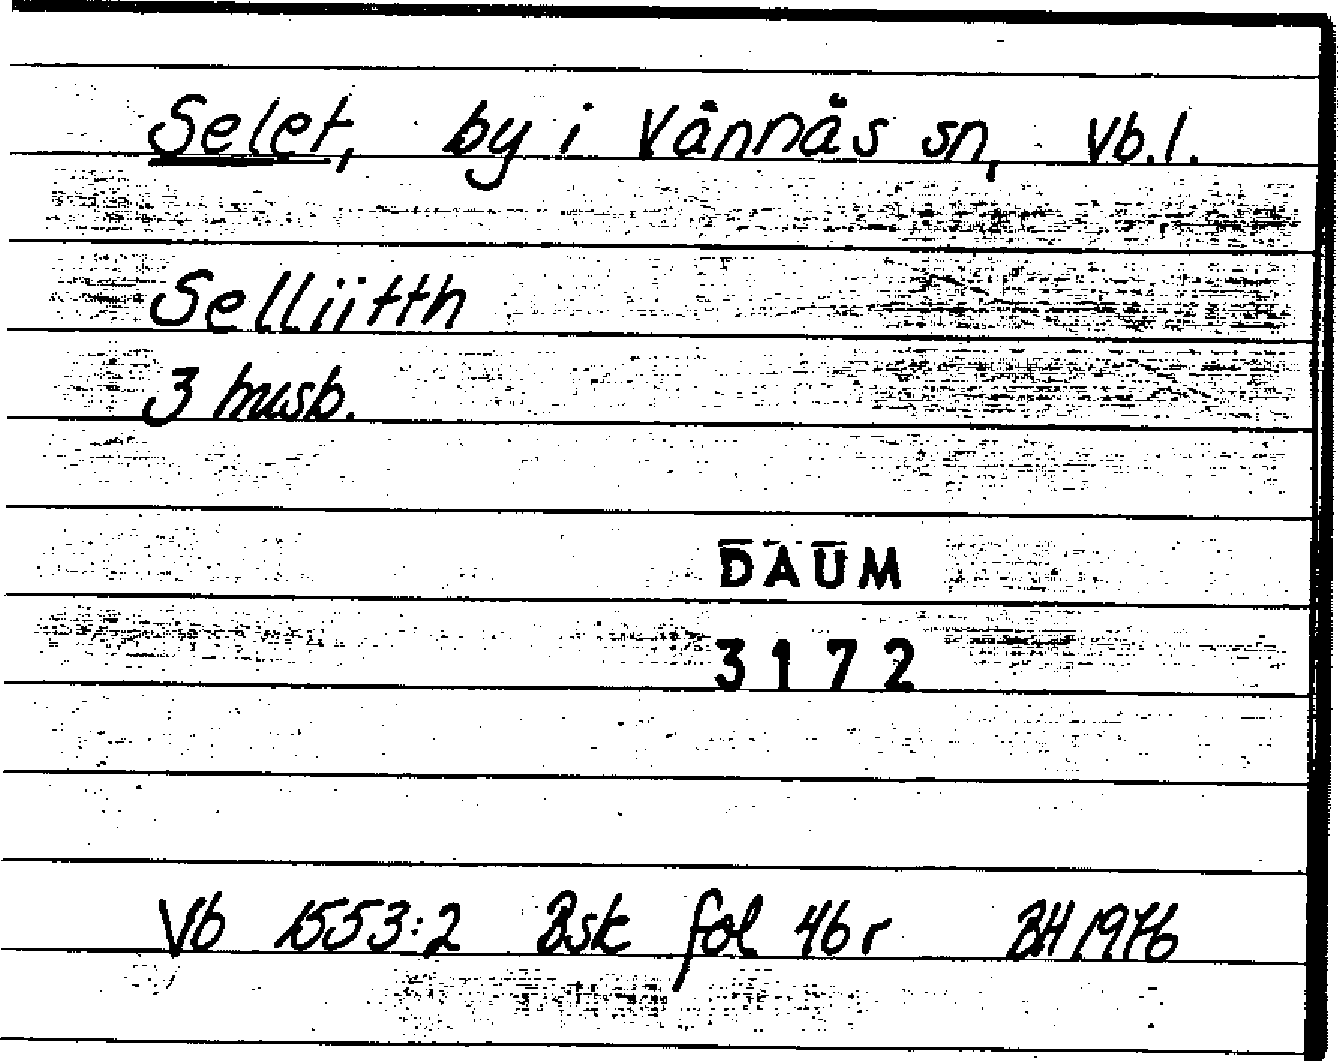 Selet, by i Vännäs sn, Vb.l.
Selliitth
3 husb.
DAUM
3172
Vb 1553:2 Bsk fol 46 r BH 1976